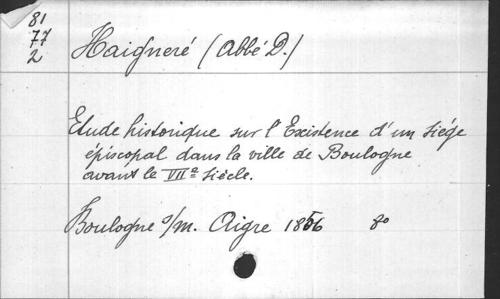 81
77
2
Haigneré (Abbé D.)
Etude historique sur l'Existence d'un siége
épiscopal dans la ville de Boulogne
avant le VIIe siècle.
Boulogne s/m. Aigre 1856 8o